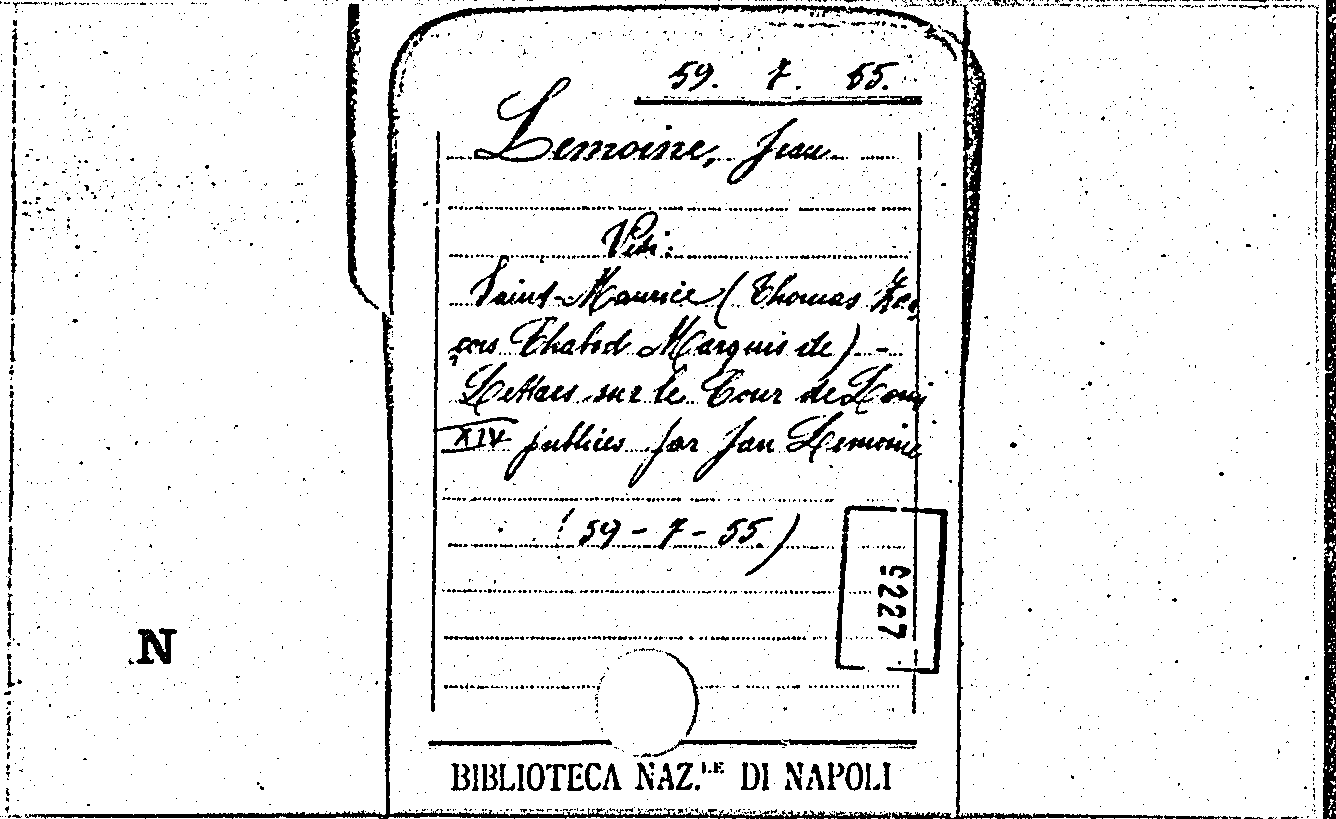 59. 7. 55.
Lemoine, Jean
Vedi:
Saint-Maurice (Thomas Fran
çois Chabod Marquis de) -
Lettres sur le Cour de Louis
XIV publiées par Jean Lemoine
(59-7-55.)
9227
N
BIBLIOTECA NAZ.LE DI NAPOLI